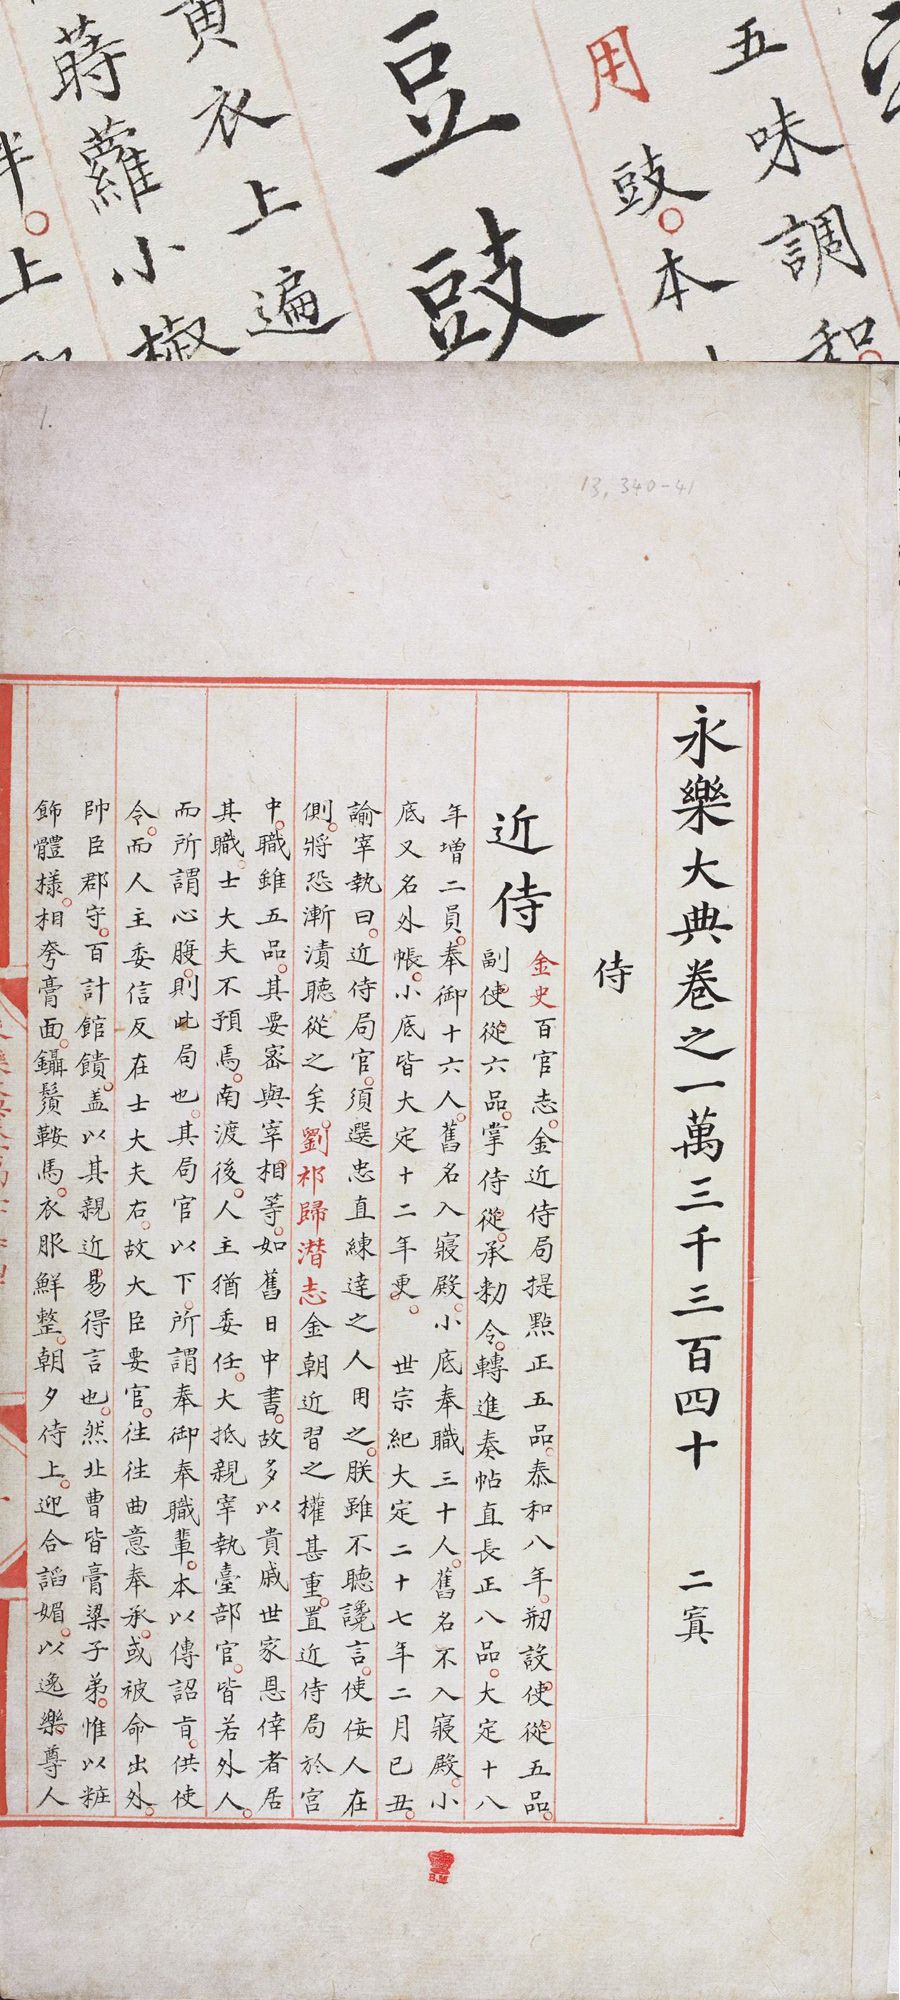 五味調和
用豉。本
豆豉
黃衣上遍
蒔蘿小椒
半。上
1.
13,340-41
永樂大典卷之一萬三千三百四十 二寘
侍
近侍
金史百官志。金近侍局提點正五品。泰和八年。剏設使。從五品。
副使。從六品。掌侍從。承勑令。轉進奏帖直長正八品。大定十八
年增二員。奉御十六人。舊名入寢殿。小底奉職三十人。舊名不入寢殿。小
底又名外帳。小底皆大定十二年更。 世宗紀大定二十七年二月己丑。
諭宰執曰。近侍局官。須選忠直練達之人用之。朕雖不聽讒言。使佞人在
側。將恐漸漬聽從之矣。劉祁歸潛志金朝近習之權甚重。置近侍局於宮
中。職雖五品。其要密與宰相等。如舊日中書。故多以貴戚世家恩倖者居
其職。士大夫不預焉。南渡後。人主猶委任。大抵親宰執臺部官。皆若外人。
而所謂心腹。則此局也。其局官以下。所謂奉御奉職輩。本以傳詔旨。供使
令。而人主委信反在士大夫右。故大臣要官。往往曲意奉承。或被命出外。
帥臣郡守。百計館饋。盖以其親近易得言也。然北曹皆膏粱子弟。惟以粧
飾體樣。相夸膏面。鑷鬚鞍馬。衣服鮮整。朝夕侍上。迎合謟媚。以逸樂導人